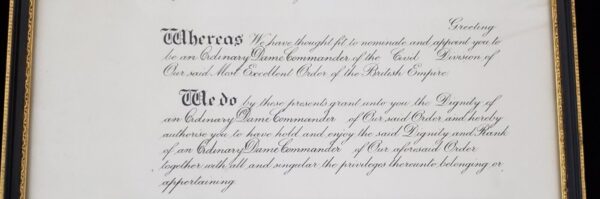 Greeting
Whereas We have thought fit to nominate and appoint you to
be an Ordinary Dame Commander of the Civil Division of
Our said Most Excellent Order of the British Empire
We do by these presents grant unto you the Dignity of
an Ordinary Dame Commander of Our said Order and hereby
authorise you to have hold and enjoy the said Dignity and Rank
of an Ordinary Dame Commander of Our aforesaid Order
together with all and singular the privileges thereunto belonging or
appertaining